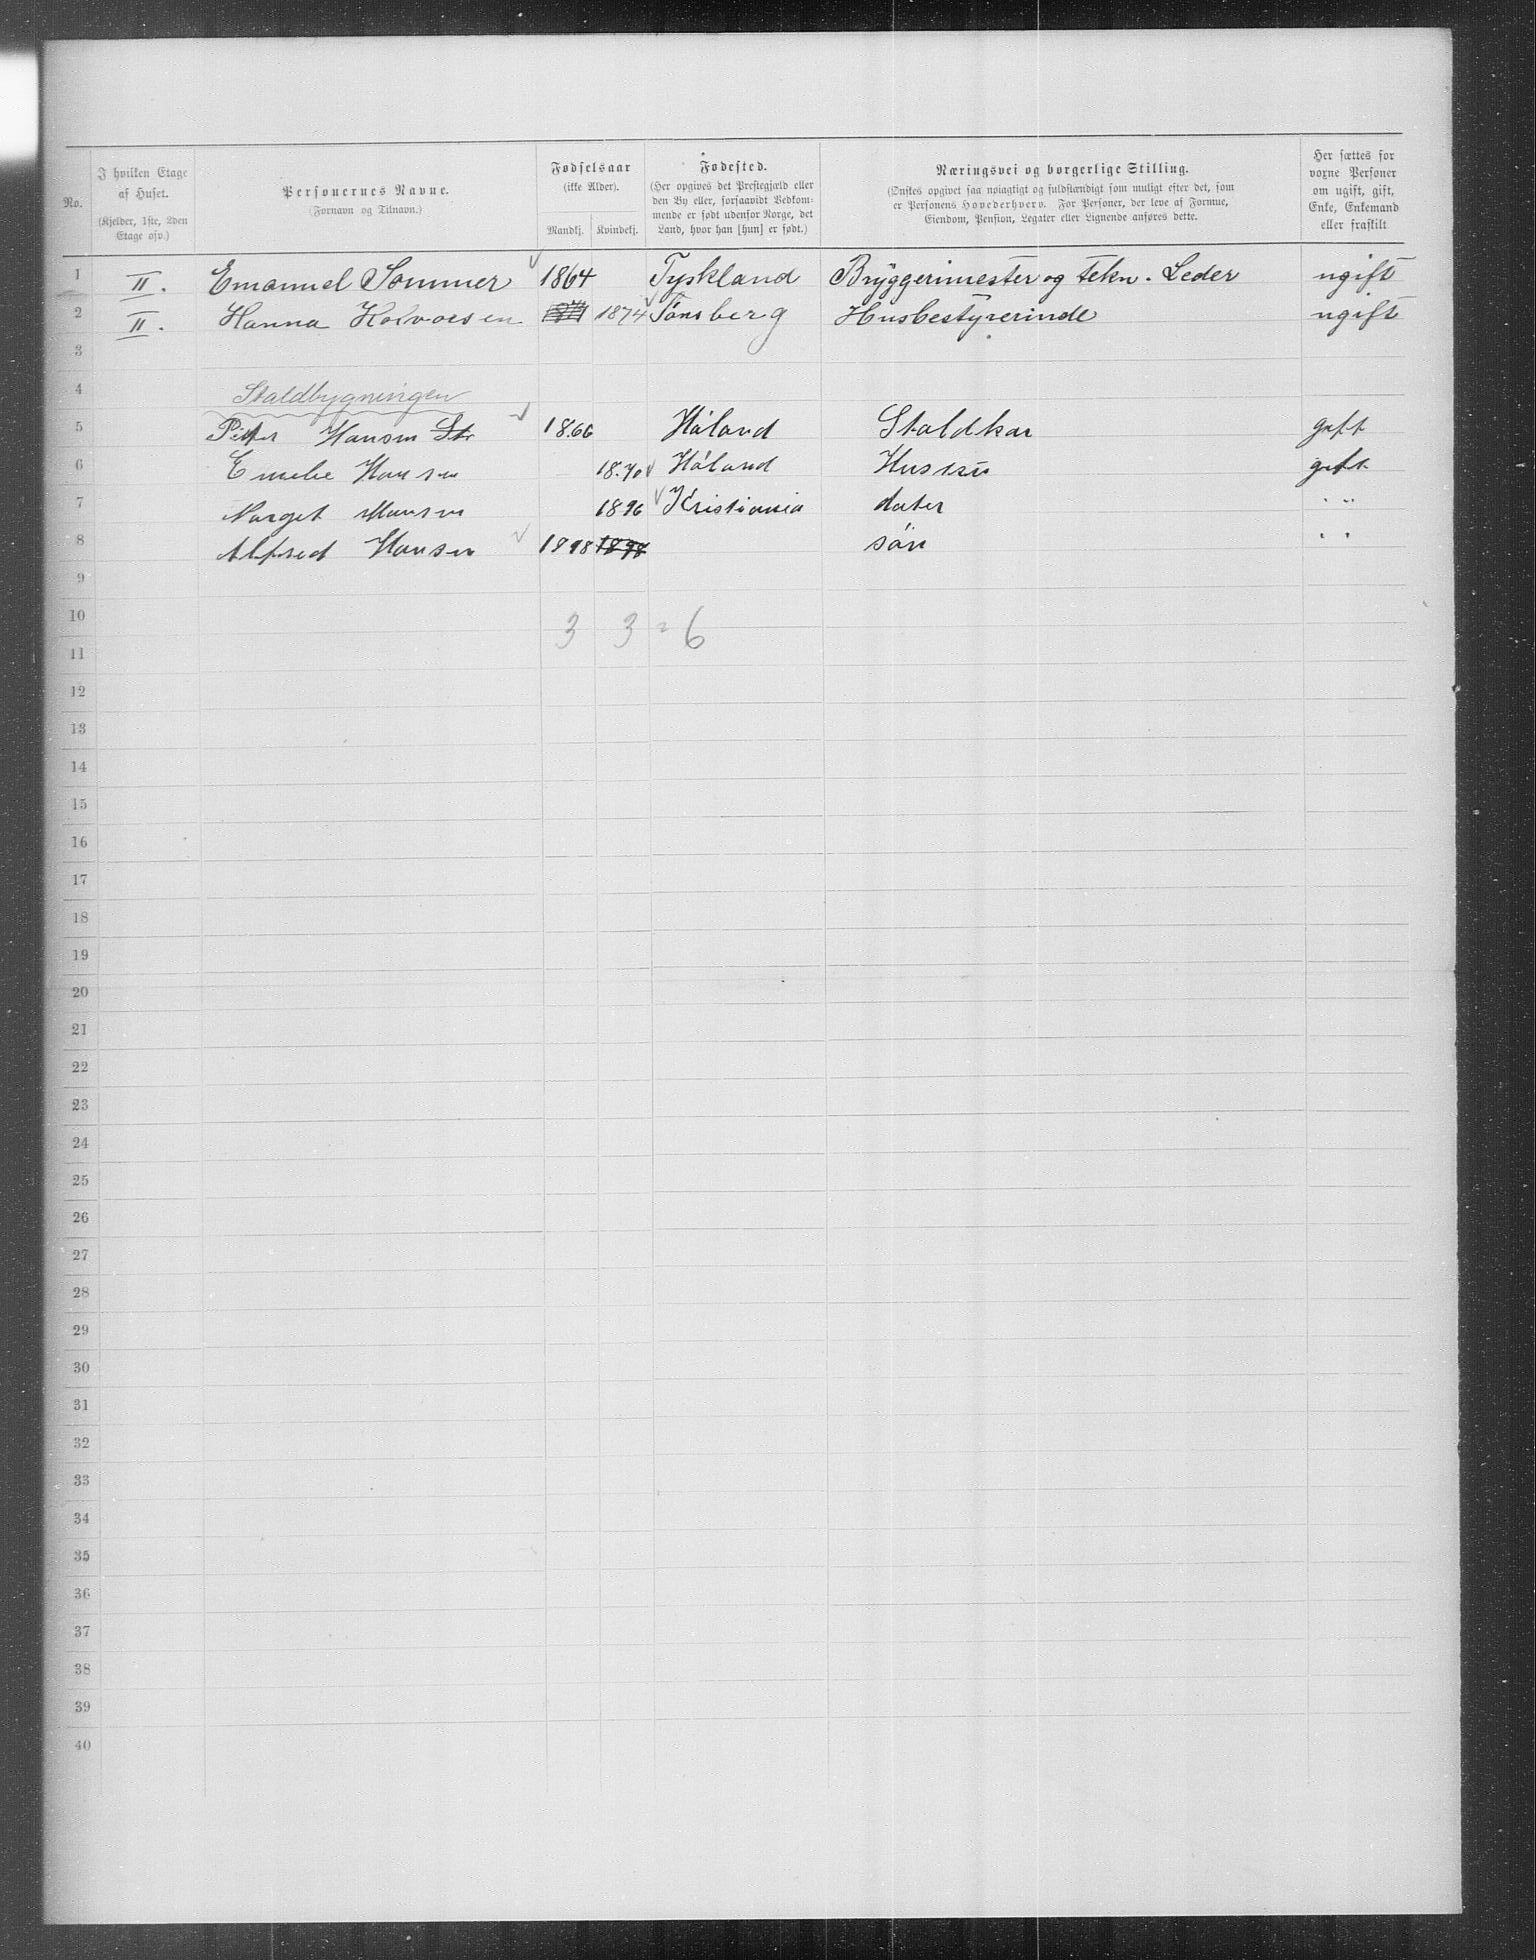 No.
I hvilken Etage
af Huset.
(Kjelder, 1ste, 2den
Etage osv.)
Personernes Navne.
(Fornavn og Tilnavn.)
Fødselsaar
(ikke Alder).
Mandkj. Kvindekj.
Fødested.
(Her opgives det Prestegjæld eller
den By eller, forsaavidt Vedkom-
mende er født udenfor Norge, det
Land, hvor han [hun] er født.)
Næringsvei og borgerlige Stilling.
(Ønskes opgivet saa nøiagtigt og fuldstændigt som muligt efter det, som
er Personens Hovederhverv. For Personer, der leve af Formue,
Eiendom, Pension, Legater eller Lignende anføres dette.
Her sættes for
voxne Personer
om ugift, gift,
Enke, Enkemand
eller fraskilt
1 II. Emanuel Sommer 1864 Tyskland Bryggerimester og tekn. Leder ugift
2 II. Hanna 1874 Tönsberg Husbestyrerinde ugift
3
4 Staldbygningen
5 Petter Hansen Str 1866 Höland Staldkar gift
6 Emelie Hansen 18.70 Höland gift
7 Marget Hansen 1896 Kristiania dater " "
8 Alfred Hansen 1898 1898 sön " "
9
10 3 3 = 6
11
12
13
14
15
16
17
18
19
20
21
22
23
24
25
26
27
28
29
30
31
32
33
34
35
36
37
38
39
40